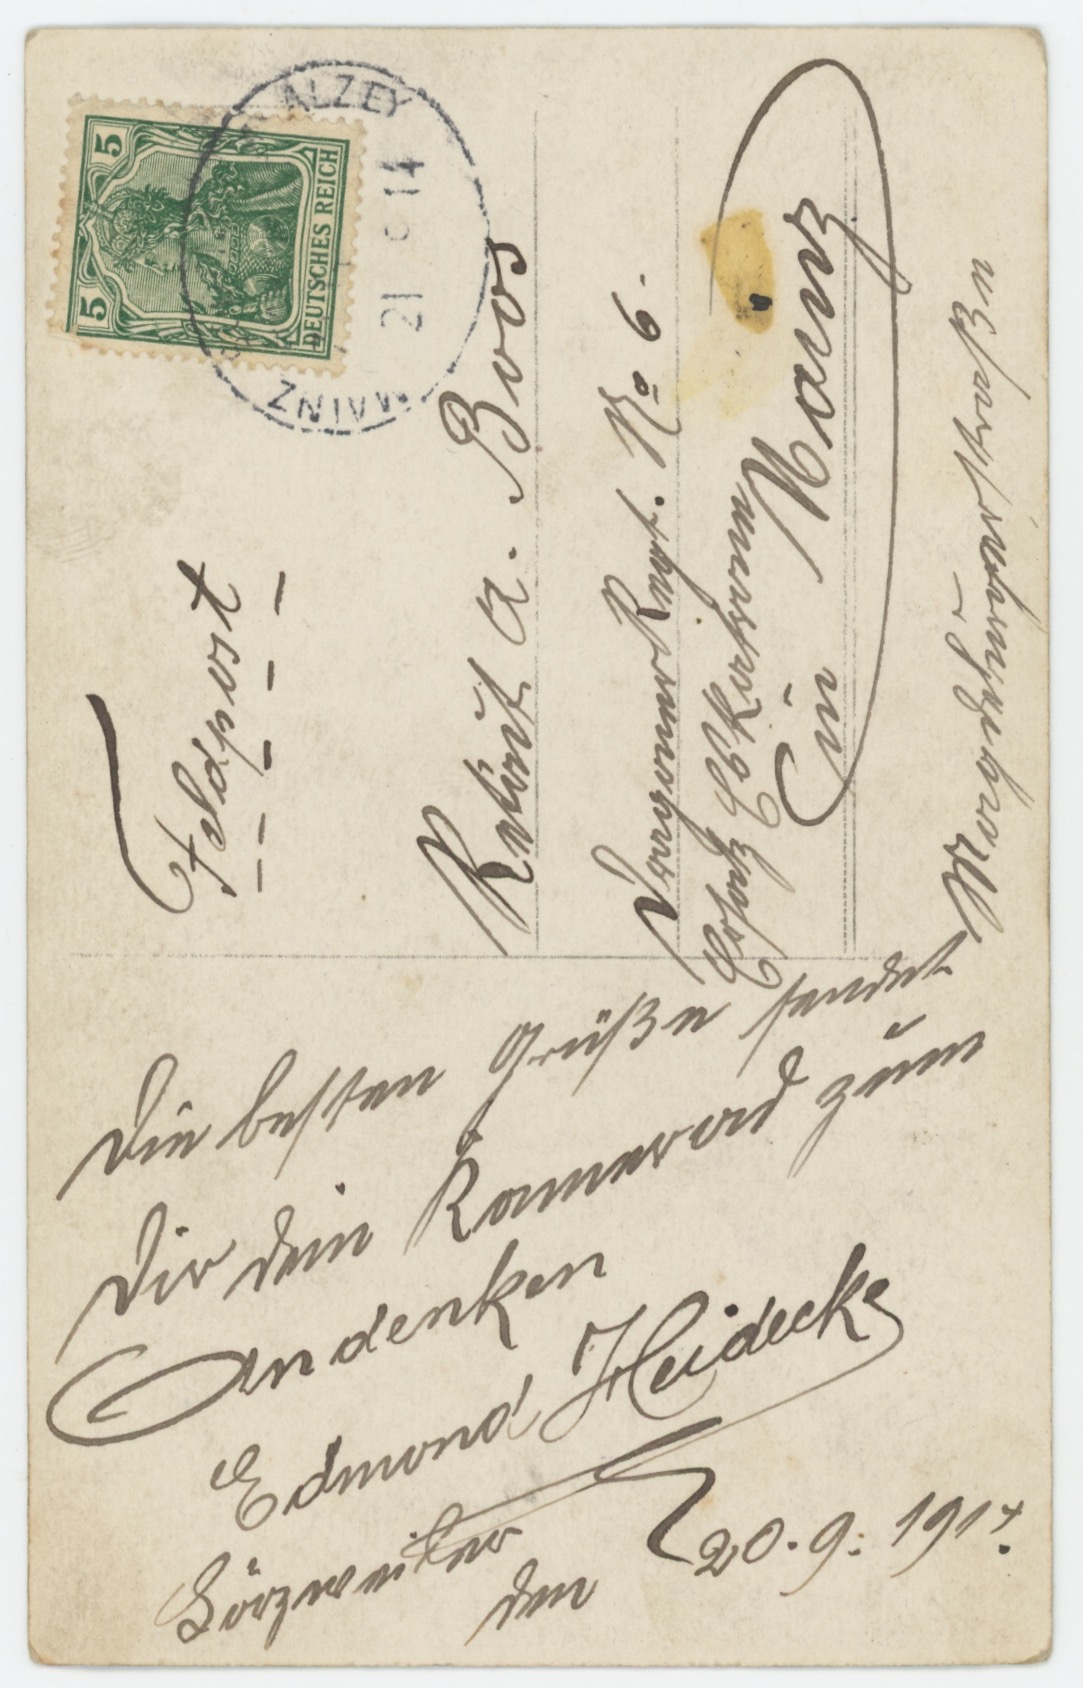 5 5
DEUTSCHES REICH
ALZEY
21 9 14
MAINZ
Feldpost
Rekrut A. Boos
Dragoner Regt. No 6.
Ersatz Eskatronn
in Mainz
Die besten Grüße sendet
Dir dein Kamerad zum
Andenken
Edmond Heidecke
Lörzweiler
den 20.9. 1914.